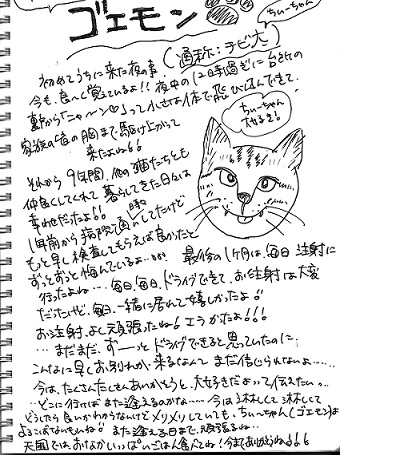 ちぃーちゃん
ゴエモン
(通称:チビ犬)
初めてうちに来た夜の事、
今も良～く覚えているよ!! 夜中の12時過ぎに台所の
って小さな体で飛び込んできて、
家族の皆の胸まで駆け上がって
来たよね
ちぃーちゃん
大好き
それから9年間、他の猫たちとも
仲良くしてくれて暮らしてきた日々は
幸わせだったよ
1年前から病院で してたけど
もっと早く検査してもらえば良かったと
ずっとずっと悔んでいるよ…
最後の1ヶ月は、毎日注射に
行ったよね…、毎日、毎日、ドライブできて、お注射は大変
だったけど、毎日、一緒に居れて嬉しかったよ
お注射、よく頑張ったね! エラかったよ!!!
…まだまだ、ずーっとドライブできると思っていたのに、
こんなに早くお別れが来るなんてまだ信じられないよ……
今は、たくさんたくさんありがとうと、大好きだよって伝えたい。
…どこに行けばまた逢えるのかな…… 今は淋しくて淋しくて
どうしたら良いかわからないけどメソメソしていても、ちぃーちゃん(ゴエモン)は
よろこばないもんね また逢える日まで、頑張るね…
天国では、おなかいっぱいごはん食べてね! 今までありがとうね